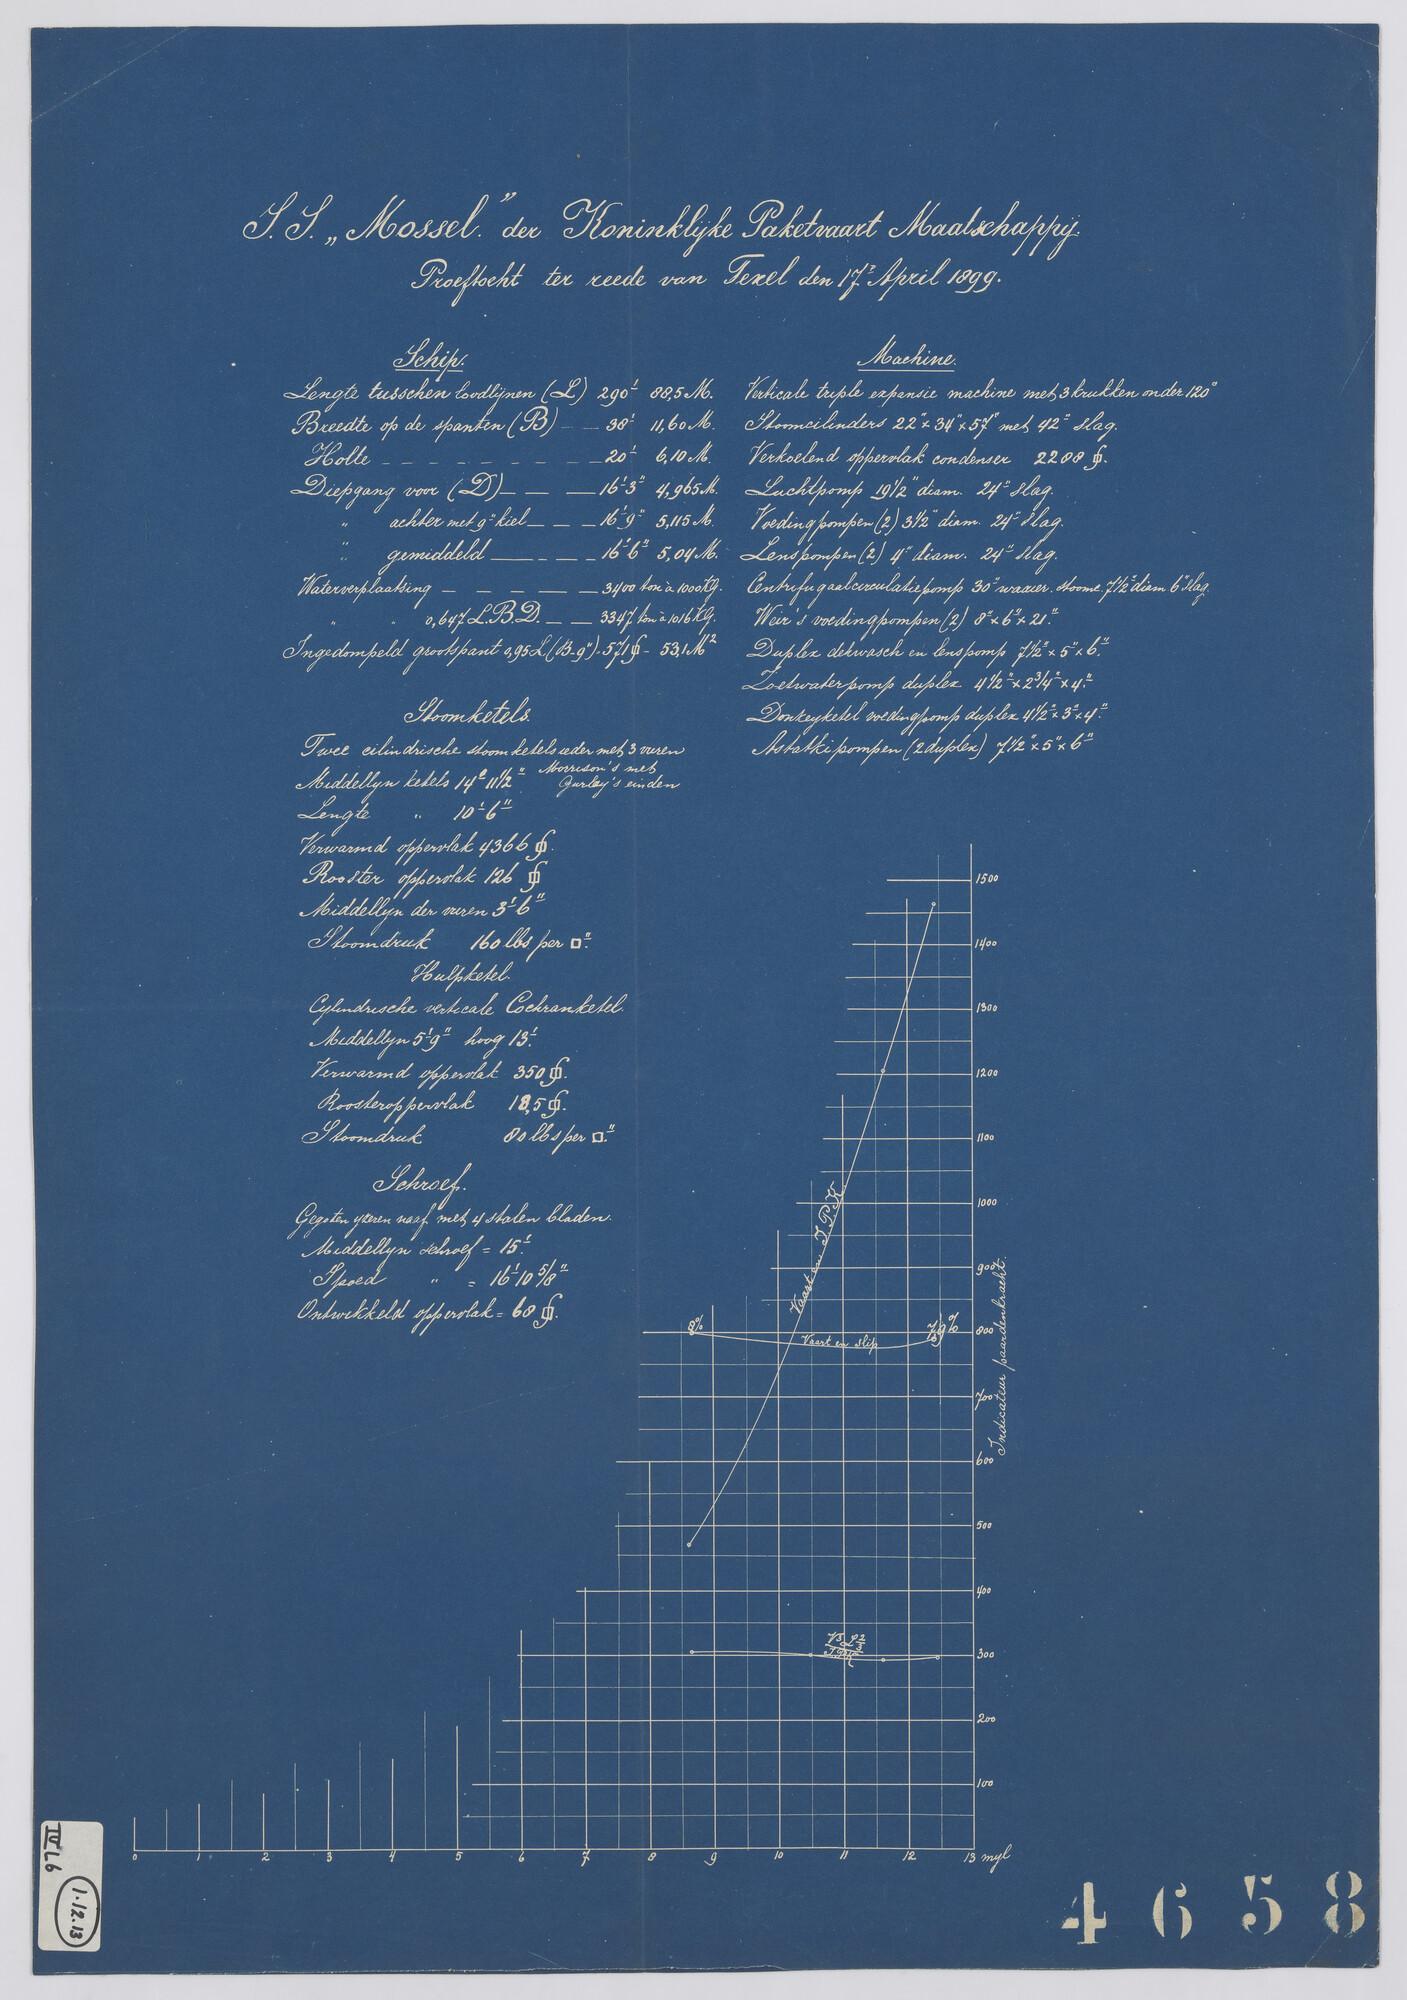 S.S. „Mossel." der Koninklijke Paketvaart Maatschappij.
Proeftocht ter reede van Texel den 17e April 1899.
Schip.
Lengte tusschen loodlijnen (L) 290' 88,5 M.
Breedte op de spanten (B) 38' 11,60 M.
Holle 20' 6,10 M.
Diepgang voor (D) 16'3" 4,965 M.
" achter met 9" kiel 16'9" 5,115 M.
" gemiddeld 16'6" 5,04 M.
Waterverplaatsing 3400 ton à 1000 Kg.
" " 0,647 L.B.D. 3347 ton à 1016 Kg.
Ingedompeld grootspant 0,95 L.(B-9") 571 - 53,1 M²
Machine.
Verticale triple expansie machine met 3 krukken onder 120°
Stoomcilinders 22" x 34" x 57" met 42" slag.
Verkoelend oppervlak condenser 2288
Luchtpomp 19 1/2" diam. 24" slag.
Voedingpompen (2) 3 1/2" diam. 24" slag.
Lenspompen (2) 4" diam. 24" slag.
Centrifugaalcirculatiepomp 30" waaier. stoomc. 7 1/2" diam 6" slag.
Weir's voedingpompen (2) 8" x 6" x 21"
Duplex dekwasch en lenspomp 7 1/2" x 5" x 6"
Zoetwaterpomp duplex 4 1/2" x 2 3/4" x 4"
Donkeyketel voedingpomp duplex 4 1/2" x 3" x 4"
Astatkipompen (2 duplex) 7 1/2" x 5" x 6"
Stoomketels.
Twee cilindrische stoomketels ieder met 3 vuren
Morrison's met
Middellyn ketels 14' 11 1/2"
Gurley's einden
Lengte " 10'6"
Verwarmd oppervlak 4366
Rooster oppervlak 126
Middellyn der vuren 3'6"
Stoomdruk 160 lbs. per □"
Hulpketel.
Cylindrische verticale Cochranketel.
Middellyn 5'9" hoog 13'
Verwarmd oppervlak 350
Roosteroppervlak 18,5
Stoomdruk 80 lbs per □"
Schroef.
Gegoten yzeren naaf met 4 stalen bladen.
Middellyn schroef = 15'
Spoed " = 16'10 5/8"
Ontwikkeld oppervlak = 68
1500
1400
1300
1200
1100
1000
900
800
700
600
500
400
300
200
100
Indicateur paardenkracht.
Vaart en I.P.K.
8%
7,9%
Vaart en slip
0 1 2 3 4 5 6 7 8 9 10 11 12 13 myl
4658
IV L6
1.12.13